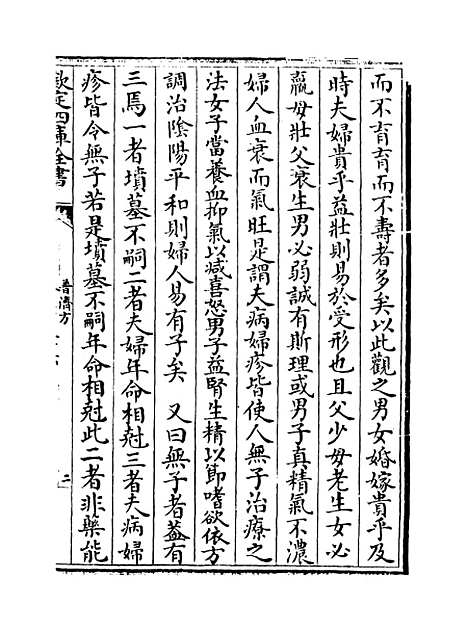 而不育育而不壽者多矣以此觀之男女婚嫁貴乎及
時夫婦貴乎益壯則易於受形也且父少母老生女必
羸母壯父衰生男必弱誠有斯理或男子真精氣不濃
婦人血衰而氣旺是謂夫病婦疹皆使人無子治療之
法女子當養血抑氣以减喜怒男子益腎生精以節嗜欲依方
調治隂陽平和則婦人易有子矣 又曰無子者蓋有
三焉一者墳墓不嗣二者夫婦年命相尅三者夫病婦
疹皆令無子若是墳墓不嗣年命相尅此二者非藥能
欽定四庫全書
普濟方
三